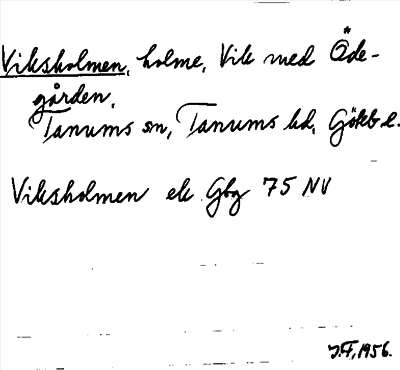 Viksholmen, holme, Vik med Öde-
gården,
Tanums sn, Tanums hd, Göteb l.
Viksholmen ek Gbg 75 NV
J.F, 1956.